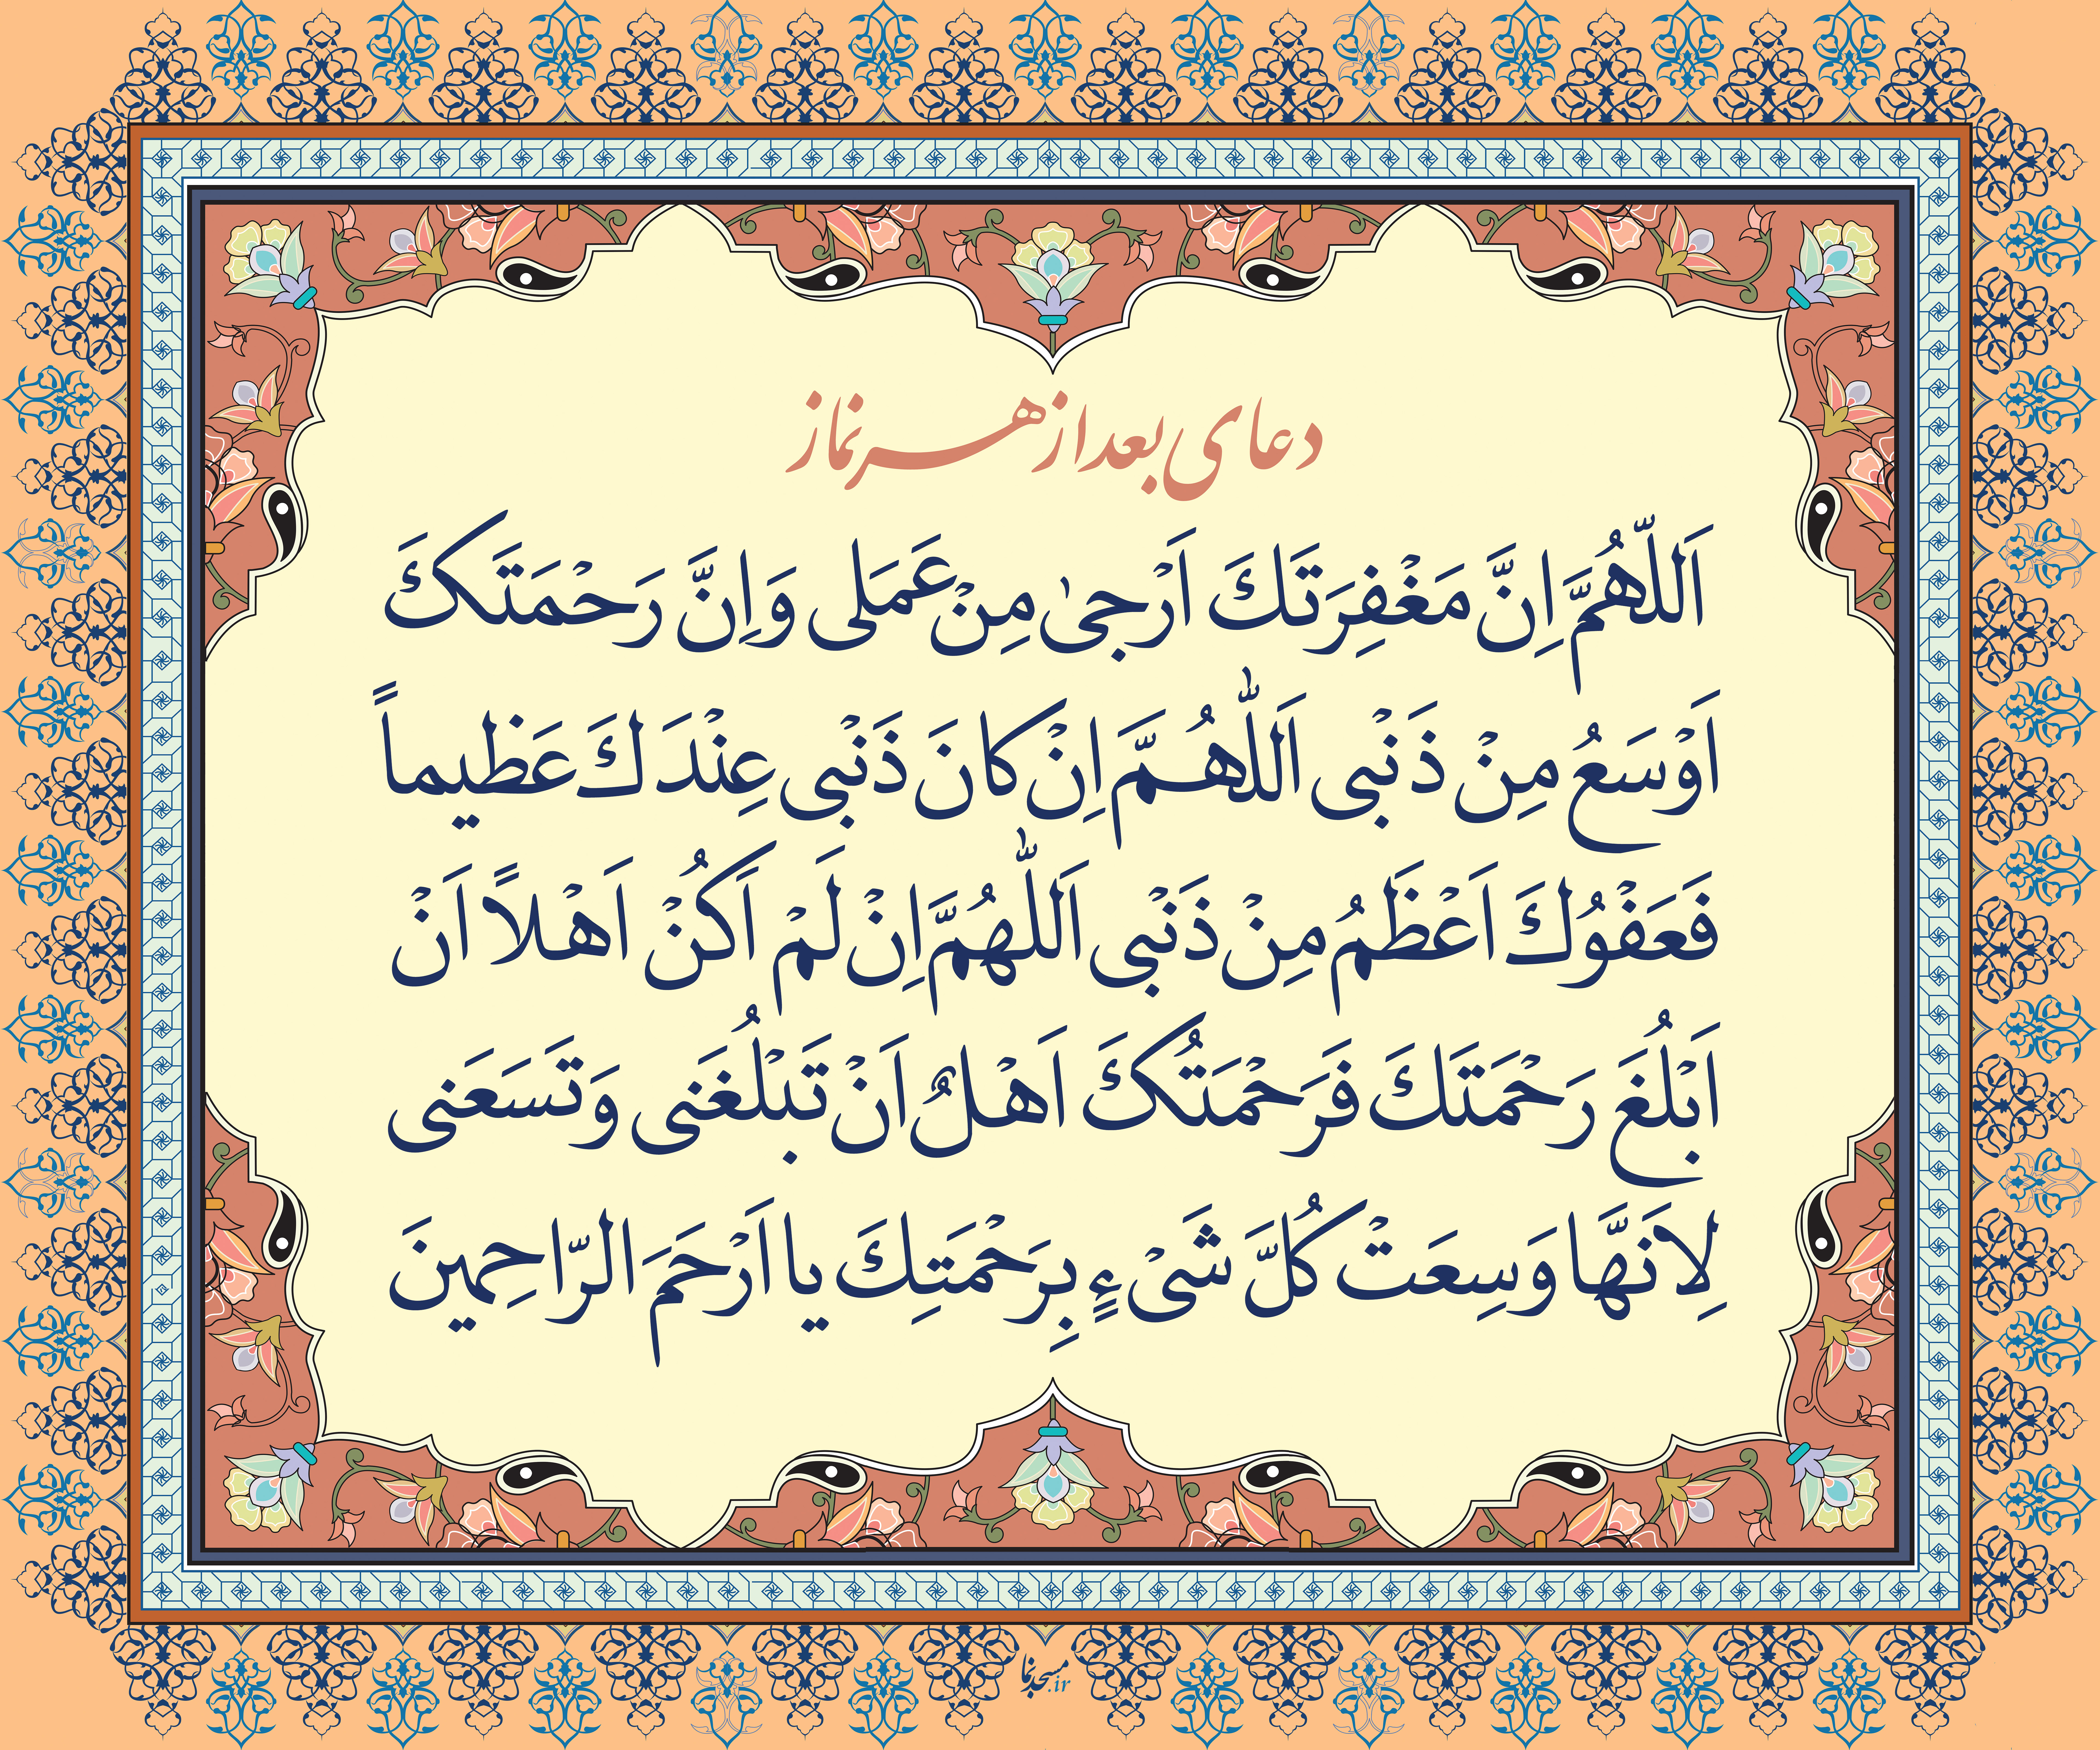 دعای بعد از هر نماز
اَللّهُمَّ اِنَّ مَغْفِرَتَكَ اَرْجىٰ مِنْ عَمَلى وَاِنَّ رَحْمَتَكَ
اَوْسَعُ مِنْ ذَنْبى اَللّٰهُمَّ اِنْ كانَ ذَنْبى عِنْدَكَ عَظيماً
فَعَفْوُكَ اَعْظَمُ مِنْ ذَنْبى اَللّٰهُمَّ اِنْ لَمْ اَكُنْ اَهْلاً اَنْ
اَبْلُغَ رَحْمَتَكَ فَرَحْمَتُكَ اَهْلٌ اَنْ تَبْلُغَنى وَتَسَعَنى
لِاَنَّها وَسِعَتْ كُلَّ شَىْءٍ بِرَحْمَتِكَ يا اَرْحَمَ الرّاحِمينَ
مسجدنما.ir